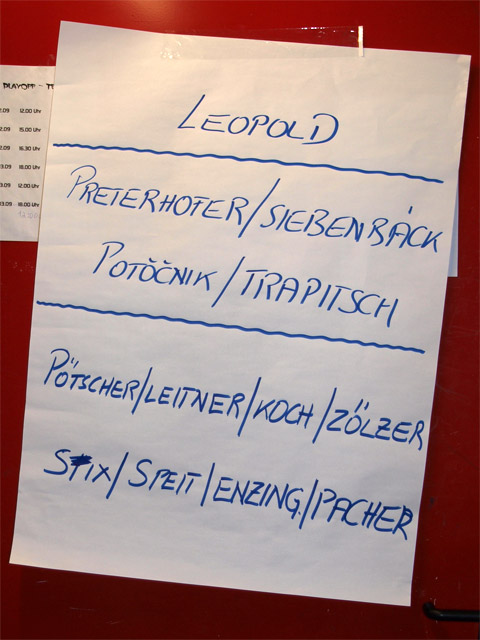 PLAYOFF - T
2.09 12.00 Uhr
2.09 15.00 Uhr
2.09 16.30 Uhr
3.09 18.00 Uhr
3.09 12.00 Uhr
3.09 18.00 Uhr
LEOPOLD
PRETERHOFER/SIEBENBÄCK
POTOČNIK/TRAPITSCH
PÖTSCHER/LEITNER/KOCH/ZÖLZER
STIX/SPEIT/ENZING./PACHER